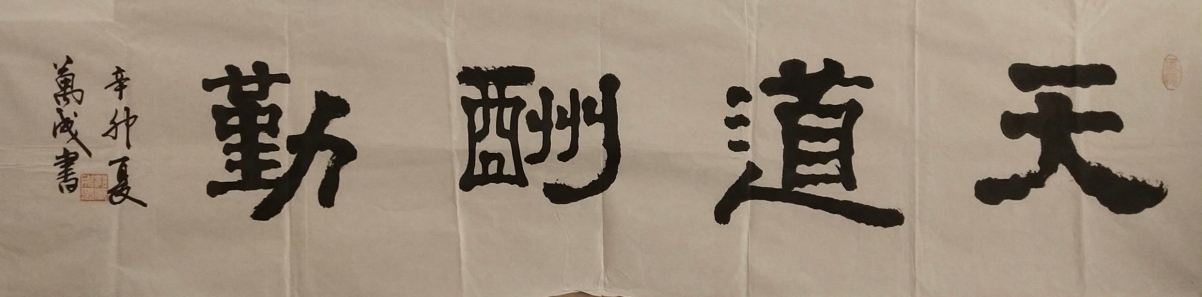 天道酬勤
辛卯夏
萬成書